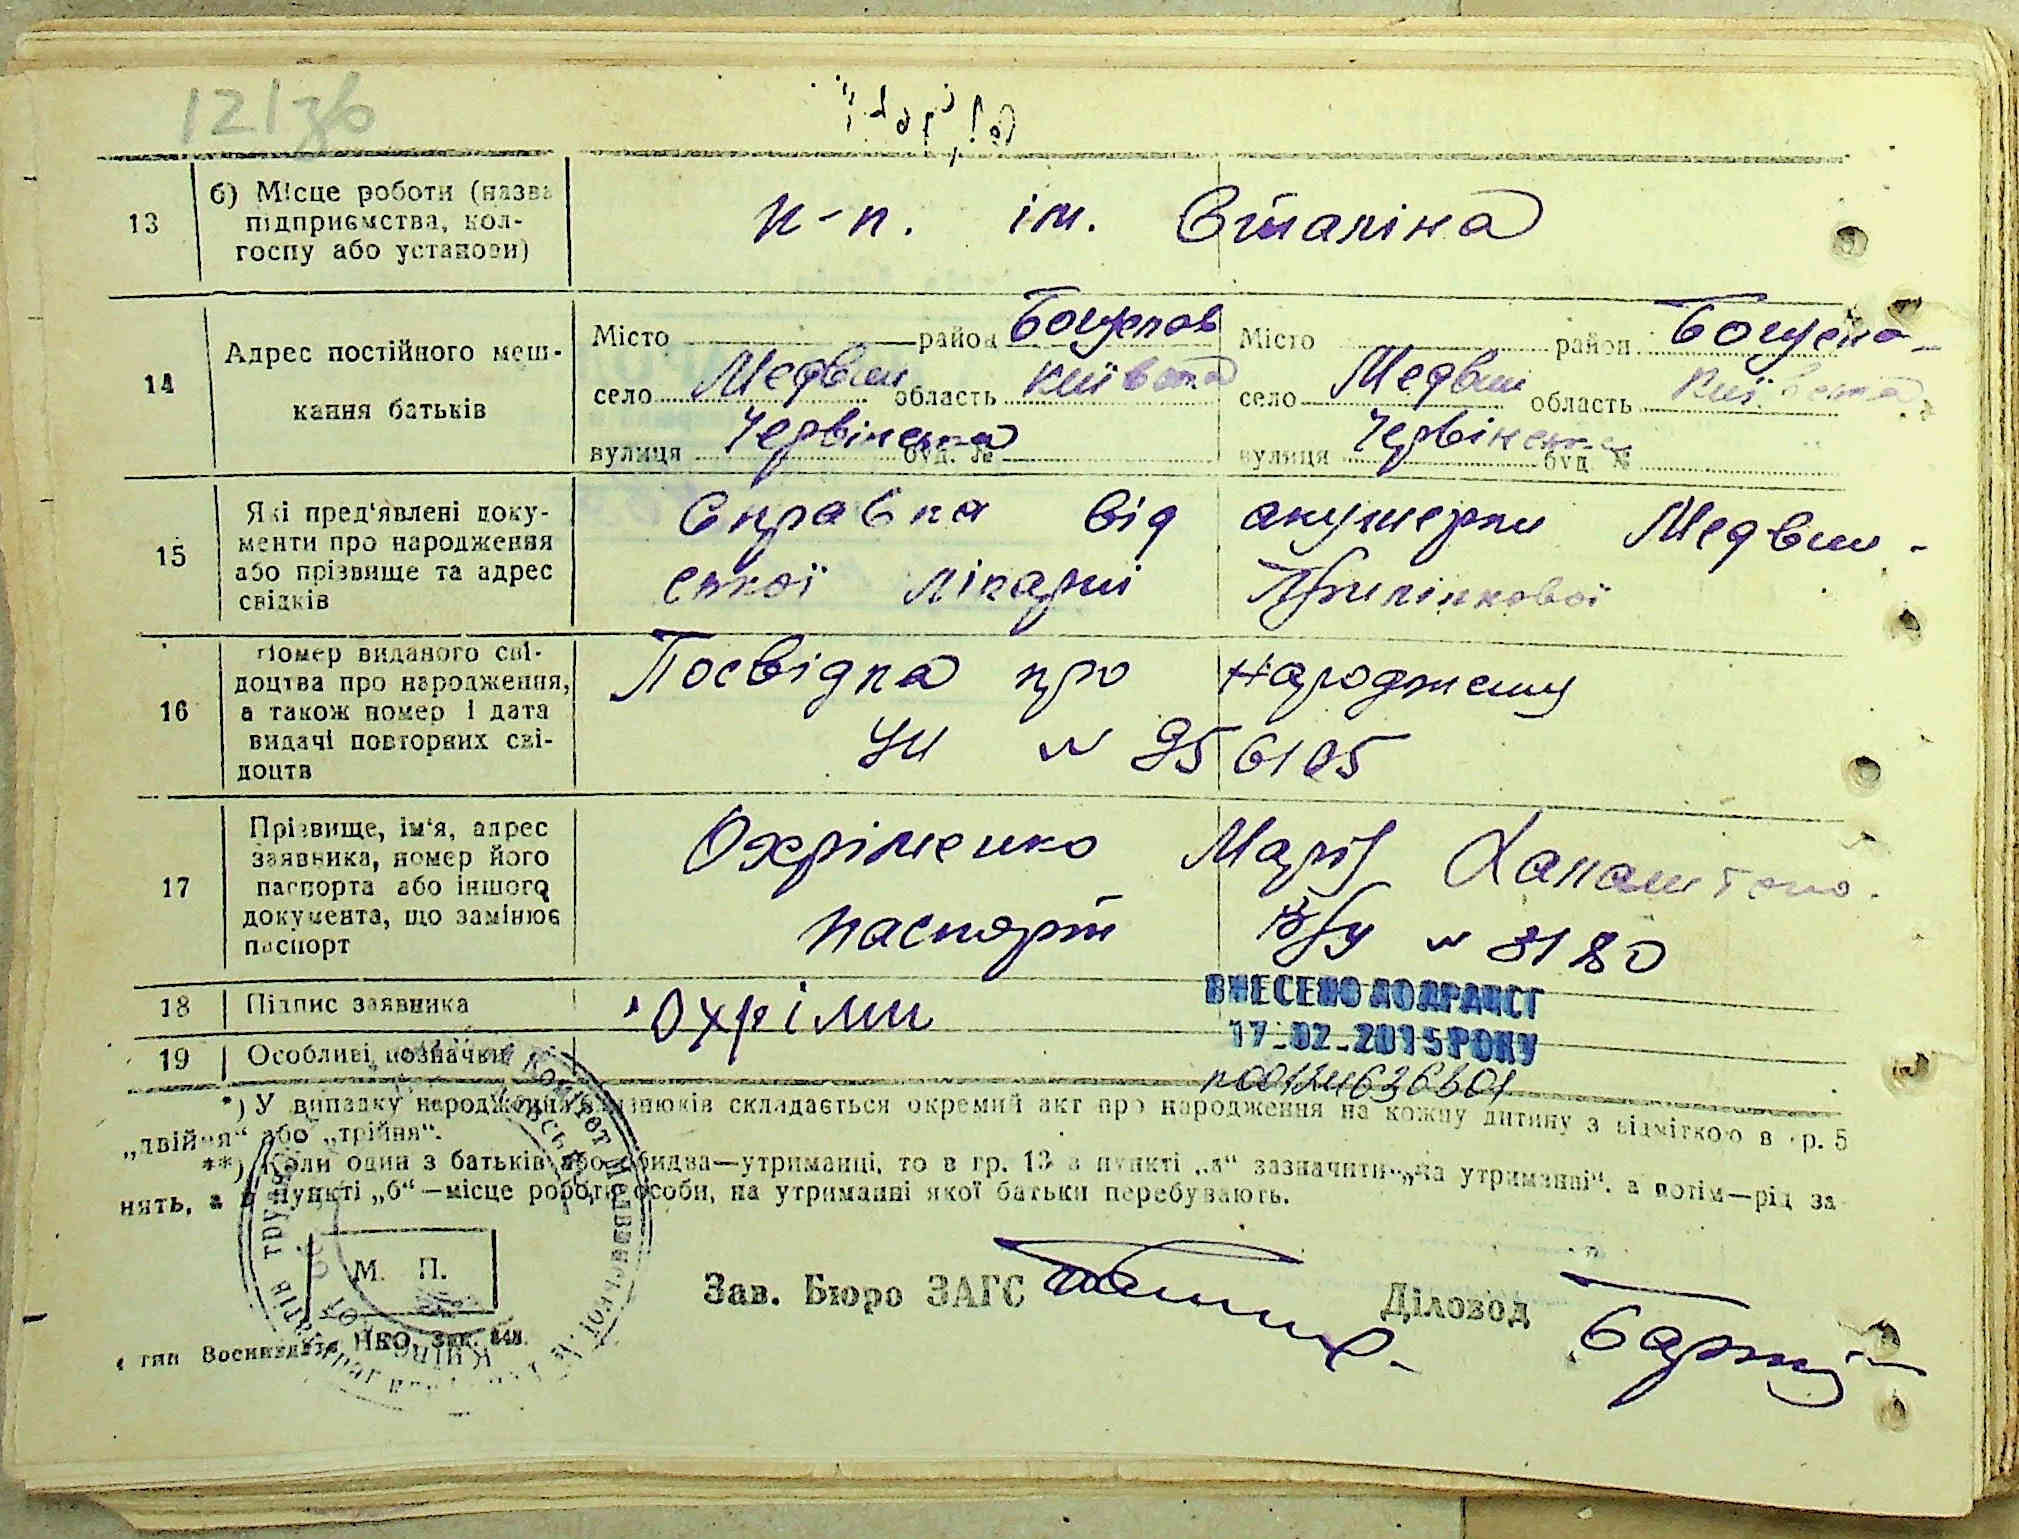 121зв
13
б) Місце роботи (назва
підприємства, кол-
госпу або установи)
к-п. ім. Сталіна
14
Адрес постійного меш-
кання батьків
Місто район Богуслав
село Медвин область Київська
вулиця Червінська буд. №
Місто район Богусла-
село Медвин область Київська
вулиця Червінська буд. №
15
Які пред'явлені доку-
менти про народження
або прізвище та адрес
свідків
Справка від акушерки Медвин-
ської лікарні
16
Номер виданого сві-
доцтва про народження,
а також номер і дата
видачі повторних сві-
доцтв
Посвідка про народженну
УИ № 956105
17
Прізвище, ім'я, адрес
заявника, номер його
паспорта або іншого
документа, що замінює
паспорт
Охріменко Марія
паспорт № 3180
18
Підпис заявника
Охріми
ВНЕСЕНО ДО ДРАЦСГ
17-02-2015 РОКУ
19
Особливі позначки
*) У випадку народження близнюків складається окремий акт про народження на кожну дитину з відміткою в гр. 5
„двійня“ або „трійня“.
**) Коли один з батьків або обидва—утриманці, то в гр. 13 в пункті „а“ зазначити „на утриманні“, а потім—рід за-
нять, а в пункті „б“—місце роботи особи, на утриманні якої батьки перебувають.
М. П.
Зав. Бюро ЗАГС
Діловод
НКО. Зак. 848.